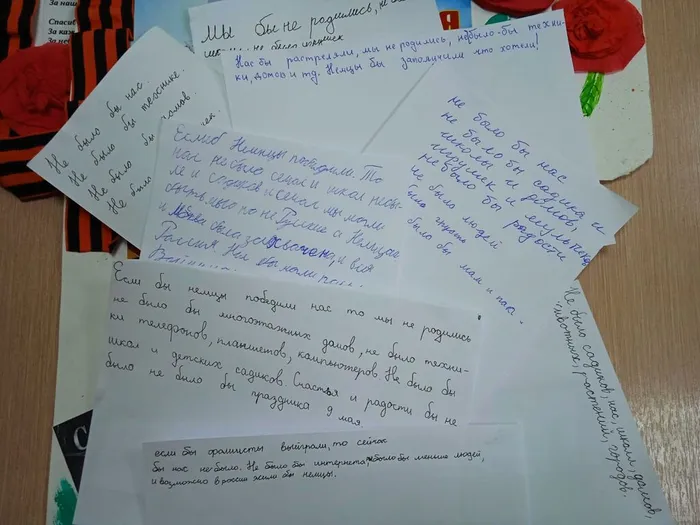 За наш
Спасиб
За каж
За не
Мы бы не родились, н
не было
Нас бы растреляли, мы не родились, небыло-бы техни-
ки, домов и тд. Немцы бы заполучили что хотели!
Не было бы нас.
Не было бы техники.
Не было бы домов.
Не было
не было бы нас
не было бы садика и
школы и домов,
игрушек и мультиков
небыло бы радости
не было людей
было бы мам и пап.
Еслиб Немцы победили. То
нас не было сечас и школ небы
ле и садиков и сечас мы могли
по не Русски а Немецки
и Москва была захвачена, и вся
Россия. Нам бы
Если бы немцы победили нас то мы не родились
не было бы многоэтажных домов, не было техни-
ки телефонов, планшетов, компьютеров. Не было бы
школ и детских садиков. Счастья и радости бы не
было не было бы праздника 9 мая.
Не было садиков, нас, школ, домов,
животных, растений, городов.
если бы фашисты выиграли, то сейчас
бы нас не было. Не было бы интернета, было бы меньше людей,
и возможно в россии жили бы немцы.